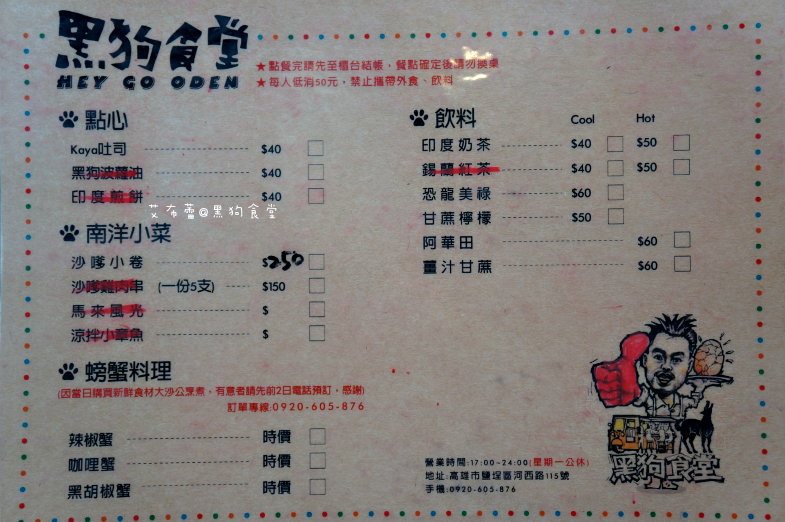 黑狗食堂
HEY GO ODEN
★點餐完請先至櫃台結帳，餐點確定後請勿換桌
★每人低消50元，禁止攜帶外食、飲料
點心
Kaya吐司 $40
黑狗波蘿油 $40
印度煎餅 $40
艾布蕾@黑狗食堂
南洋小菜
沙嗲小卷 $250
沙嗲雞肉串 (一份5支) $150
馬來風光 $
涼拌小章魚 $
螃蟹料理
(因當日購買新鮮食材大沙公烹煮，有意者請先前2日電話預訂，感謝)
訂單專線:0920-605-876
辣椒蟹 時價
咖哩蟹 時價
黑胡椒蟹 時價
飲料 Cool Hot
印度奶茶 $40 $50
錫蘭紅茶 $40 $50
恐龍美祿 $60
甘蔗檸檬 $50
阿華田 $60
薑汁甘蔗 $60
營業時間:17:00~24:00(星期一公休)
地址:高雄市鹽埕區河西路115號
手機:0920-605-876
黑狗食堂